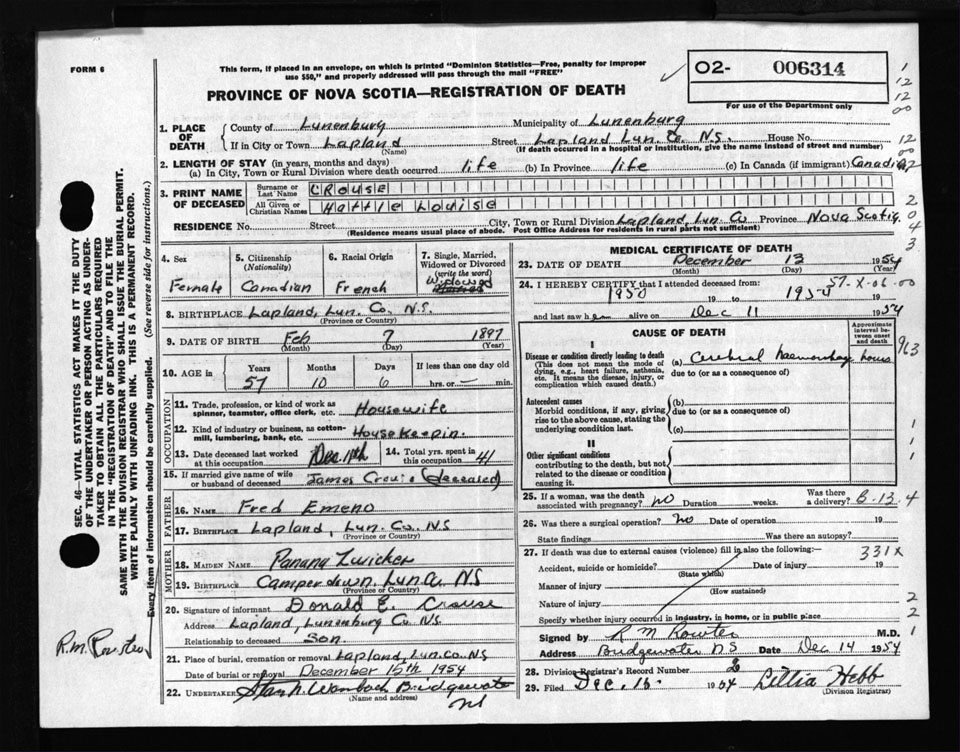 FORM 6
This form, if placed in an envelope, on which is printed "Dominion Statistics—Free, penalty for improper
use $50," and properly addressed will pass through the mail "FREE"
02- 006314
For use of the Department only
PROVINCE OF NOVA SCOTIA—REGISTRATION OF DEATH
1
12
12
00
12
00
2
0
4
3
1. PLACE OF DEATH
County of Lunenburg Municipality of Lunenburg
If in City or Town Lapland Street Lapland Lun. Co. N.S. House No.
(Name) (If death occurred in a hospital or institution, give the name instead of street and number)
2. LENGTH OF STAY (in years, months and days)
(a) In City, Town or Rural Division where death occurred life (b) In Province life (c) In Canada (if immigrant) Canadian
3. PRINT NAME OF DECEASED
Surname or Last Name CROUSE
All Given or Christian Names Hattie Louise
RESIDENCE No. Street City, Town or Rural Division Lapland, Lun. Co Province Nova Scotia
(Residence means usual place of abode. Post Office Address for residents in rural parts not sufficient)
SEC. 46—VITAL STATISTICS ACT MAKES IT THE DUTY
OF THE UNDERTAKER OR PERSON ACTING AS UNDER-
TAKER TO OBTAIN ALL THE PARTICULARS REQUIRED
IN THE "REGISTRATION OF DEATH" AND TO FILE THE
SAME WITH THE DIVISION REGISTRAR WHO SHALL ISSUE THE BURIAL PERMIT.
WRITE PLAINLY WITH UNFADING INK. THIS IS A PERMANENT RECORD.
Every item of information should be carefully supplied. (See reverse side for instructions.)
4. Sex
Female
5. Citizenship
(Nationality)
Canadian
6. Racial Origin
French
7. Single, Married,
Widowed or Divorced
(write the word)
Widowed
8. BIRTHPLACE Lapland, Lun. Co. N.S.
(Province or Country)
9. DATE OF BIRTH Feb 7 1897
(Month) (Day) (Year)
10. AGE in
Years Months Days If less than one day old
57 10 6 hrs. or — min.
OCCUPATION
11. Trade, profession, or kind of work as
spinner, teamster, office clerk, etc. Housewife
12. Kind of industry or business, as cotton-
mill, lumbering, bank, etc. Housekeepin.
13. Date deceased last worked
at this occupation Dec. 11th
14. Total yrs. spent in
this occupation 41
15. If married give name of wife
or husband of deceased James Crouse (deceased)
FATHER
16. NAME Fred Emeno
17. BIRTHPLACE Lapland, Lun. Co. N.S
(Province or Country)
MOTHER
18. MAIDEN NAME Panana Zwicker
19. BIRTHPLACE Camperdown, Lun. Co. N.S
(Province or Country)
20. Signature of informant Donald E. Crouse
Address Lapland, Lunenburg Co. N.S
Relationship to deceased Son.
21. Place of burial, cremation or removal Lapland, Lun. Co. NS
Date of burial or removal December 15th 1954
22. UNDERTAKER Bridgewater
NS
(Name and address)
R.M.
MEDICAL CERTIFICATE OF DEATH
23. DATE OF DEATH December 13 1954
(Month) (Day) (Year)
57-X-06-00
24. I HEREBY CERTIFY that I attended deceased from:
1950 19 to 1954 19
and last saw her alive on Dec 11 1954
CAUSE OF DEATH
Approximate
interval be-
tween onset
and death
I
Disease or condition directly leading to death
(This does not mean the mode of
dying, e.g., heart failure, asthenia,
etc. It means the disease, injury, or
complication which caused death.)
(a) Cerebral Haemorrhage hours
due to (or as a consequence of)
963
Antecedent causes
Morbid conditions, if any, giving
rise to the above cause, stating the
underlying condition last.
(b)
due to (or as a consequence of)
(c)
II
Other significant conditions
contributing to the death, but not
related to the disease or condition
causing it.
1
1
1
25. If a woman, was the death
associated with pregnancy? no Duration weeks. Was there
a delivery? B-13-4
26. Was there a surgical operation? no Date of operation 19
State findings Was there an autopsy?
27. If death was due to external causes (violence) fill in also the following:— 331X
Accident, suicide or homicide? Date of injury 19
(State which)
Manner of injury
(How sustained)
Nature of injury 2
Specify whether injury occurred in industry, in home, or in public place 2
Signed by R M Rowter M.D. 1
Address Bridgewater NS Date Dec 14 1954
28. Division Registrar's Record Number
29. Filed Dec. 15. 1954 Hebb
(Division Registrar)